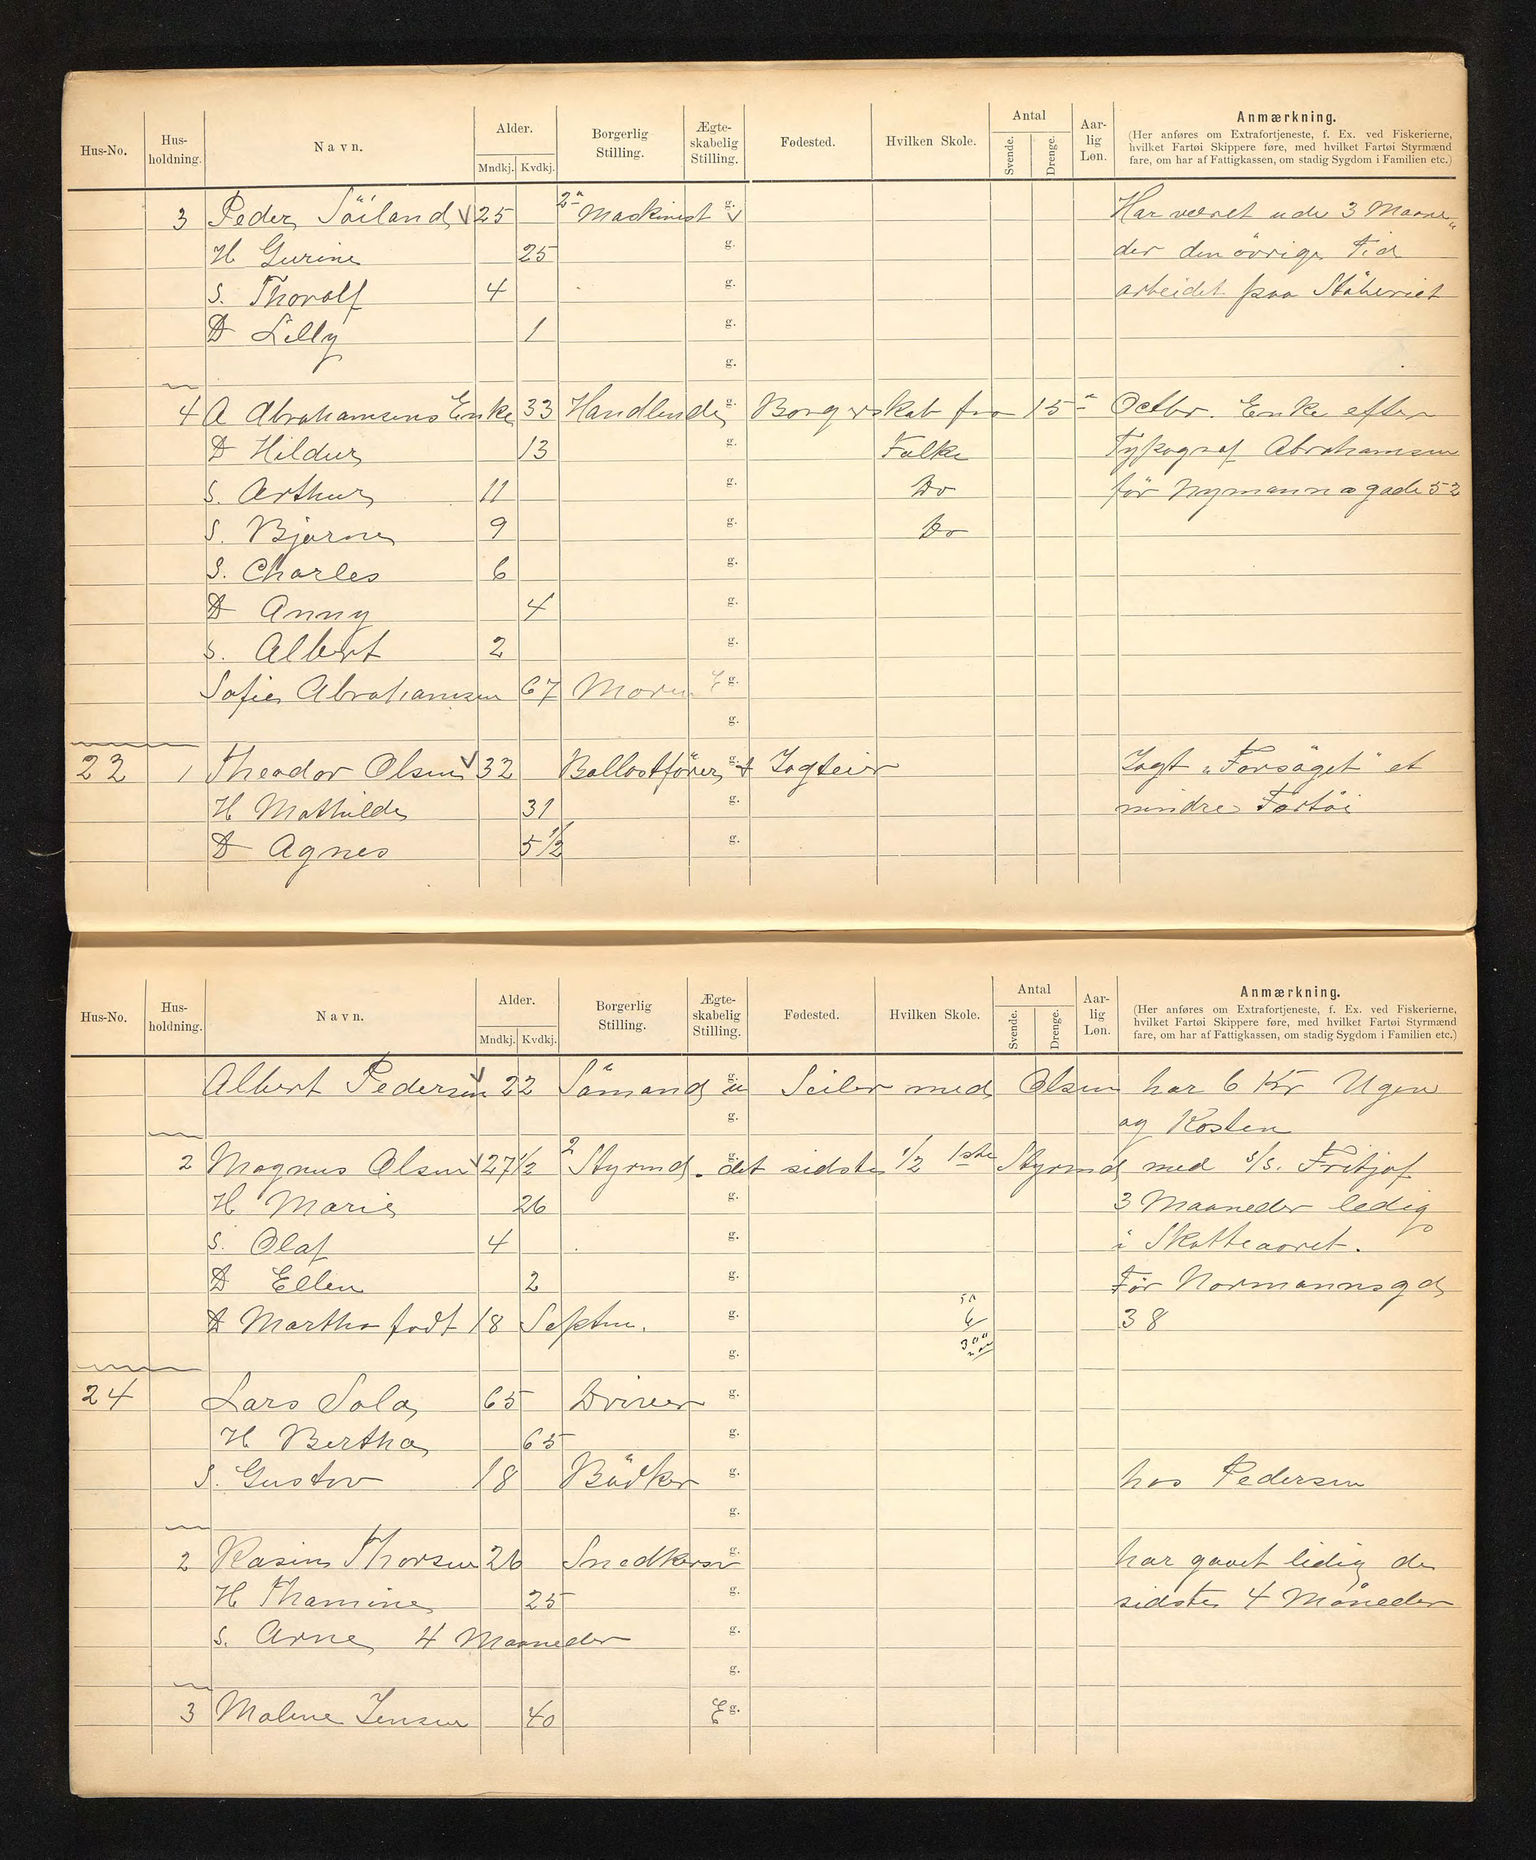 Hus-No. Hus-holdning. Navn. Alder. Mndkj. Kvdkj. Borgerlig Stilling. Ægte-skabelig Stilling. Fødested. Hvilken Skole. Antal Svende. Drenge. Aar-lig Løn. Anmærkning.
(Her anføres om Extrafortjeneste, f. Ex. ved Fiskerierne,
hvilket Fartøi Skippere føre, med hvilket Fartøi Styrmænd
fare, om har af Fattigkassen, om stadig Sygdom i Familien etc.)
3 Peder Söiland 25 2n Maskinist g. Har været ude 3 Maane
H Gurine 25 g. der den övrige Tid
S. Thoralf 4 g. arbeidet paa Stöberiet
D Lilly 1 g.
g.
4 A Abrahamsens Enke 33 Handlende g. Borgerskab fra 15n Octbr. Enke efter
D Hildur 13 g. Folke Typograf Abrahamsen
S. Arthur 11 g. Do för Nymannsgade 52
S. Bjarne 9 g. Do
S. Charles 6 g.
D Anny 4 g.
S. Albert 2 g.
Sofie Abrahamsen 67 Moren E g.
g.
22 1 Theodor Olsen 32 Ballastförer g. + Jagteier Jagt "Forsöget" et
H Mathilde 31 g. mindre Fartöi
D Agnes 5 1/2 g.
Hus-No. Hus-holdning. Navn. Alder. Mndkj. Kvdkj. Borgerlig Stilling. Ægte-skabelig Stilling. Fødested. Hvilken Skole. Antal Svende. Drenge. Aar-lig Løn. Anmærkning.
(Her anføres om Extrafortjeneste, f. Ex. ved Fiskerierne,
hvilket Fartøi Skippere føre, med hvilket Fartøi Styrmænd
fare, om har af Fattigkassen, om stadig Sygdom i Familien etc.)
Albert Pedersen 22 Sömand g. u Seiler med Olsen har 6 Kr Ugen
g. og Kosten
2 Magnus Olsen 27 1/2 2 Styrmd. g. det sidste 1/2 1ste Styrmd med s/s. Fritjof
H Marie 26 g. 3 Maaneder ledig
S. Olaf 4 g. i Skatteaaret.
D Ellen 2 g. Før Normannsgd
D Martha födt 18 Septm. g. 6 38
g. 300
24 Lars Sola 65 Driver g.
H Bertha 65 g.
S. Gustav 18 Bödker g. hos Pedersen
g.
2 Rasim Thorsen 26 Snedkersv g. har gaaet ledig de
H Thamine 25 g. sidste 4 Måneder
S. Arne 4 Maaneder g.
g.
3 Malene Jensen 40 E g.